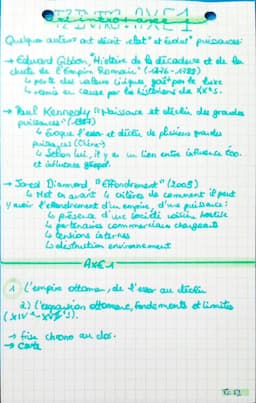 Quelques auteurs ont décrit état° et évolut° puissances:
→ Edward Gibbon, "Histoire de la décadence et de la
chute de l'Empire Romain" (1776-1788)
↳ perte des valeurs civiques par le luxe
↳ remis en cause par les historiens du XXe s.
→ Paul Kennedy "Naissance et déclin des grandes
puissances" (1987)
↳ Évoque l'essor et déclin de plusieurs grandes
puissances (Chine)
↳ Selon lui, il y a un lien entre influence éco.
et influence géopol.
→ Jared Diamond, "Effondrement" (2005)
↳ Met en avant 4 critères de comment il peut
y avoir l'effondrement d'un empire, d'une puissance:
↳ présence d'une société voisine hostile
↳ partenaires commerciaux changeants
↳ tensions internes
↳ destruction environnement
AXE 1
1 L'empire ottoman, de l'essor au déclin
a) L'expansion ottomane, fondements et limites
→ frise chrono au dos.
→ carte